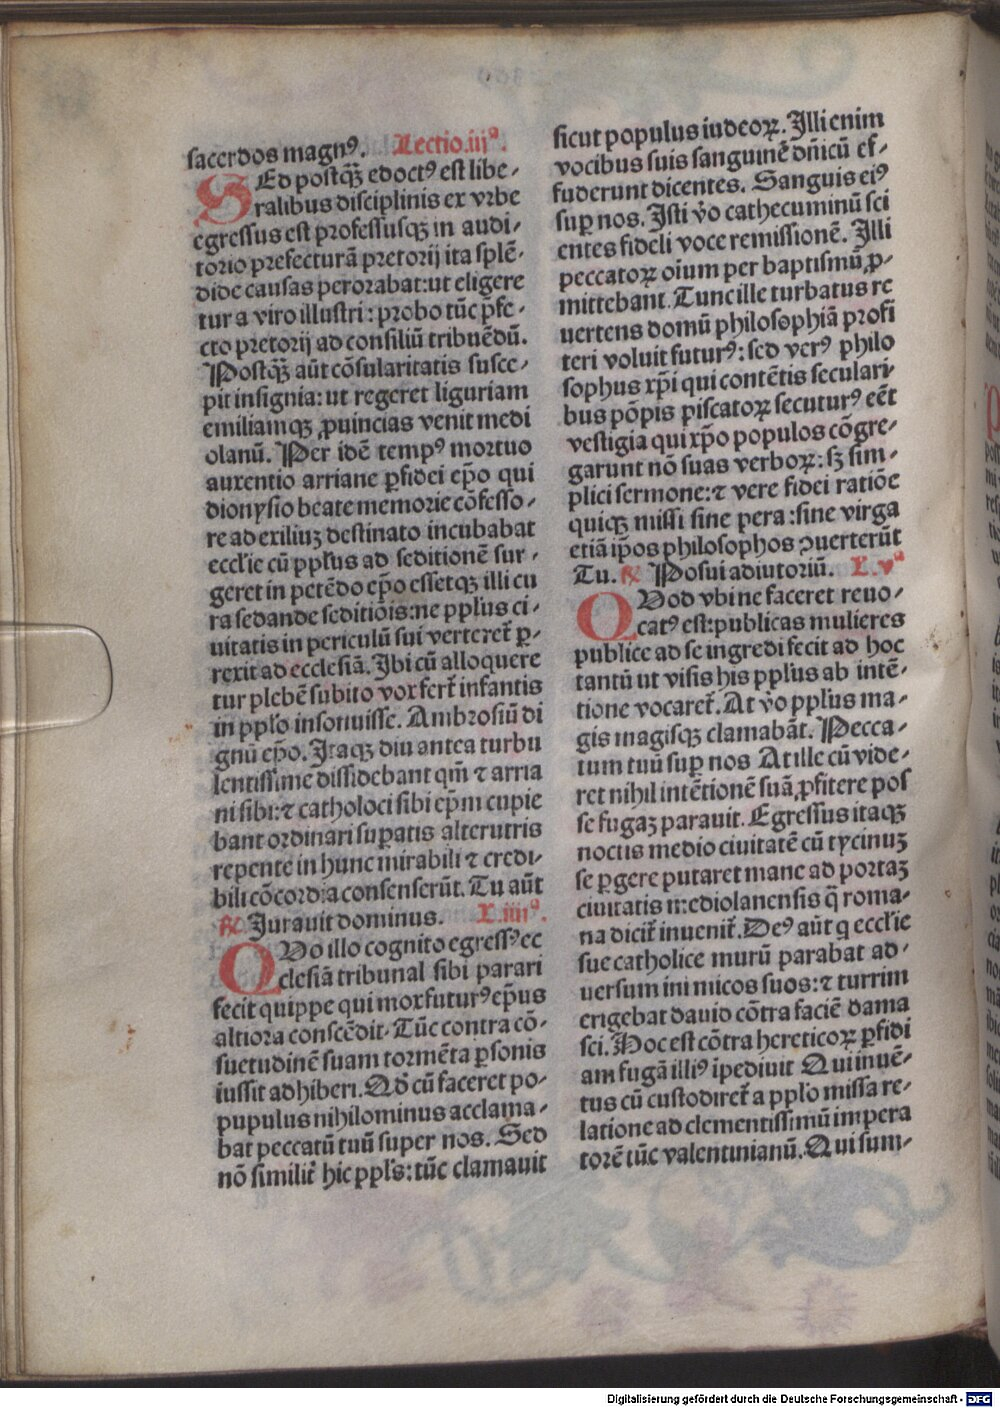 sacerdos magnꝰ. Lectio.iijª.
SEd postqꝫ̃ edoctꝰ est libe⸗
ralibus disciplinis ex vrbe
egressus est professusqꝫ in audi⸗
torio prefecturã pretorij ita splẽ⸗
dide causas perorabat:ut eligere
tur a viro illustri:probo tũc p̃fe⸗
cto pretorij ad consiliũ tribuẽdũ.
Postqꝫ̃ aũt cõsularitatis susce⸗
pit insignia:ut regeret liguriam
emiliamqꝫ ꝓuincias venit medi
olanũ. Per idẽ tempꝰ mortuo
auxentio arriane ꝑfidei ep̃o qui
dionysio beate memorie cõfesso⸗
re ad exiliuꝫ destinato incubabat
eccl̃ie cũ ppl̃us ad seditionẽ sur⸗
geret in petẽdo ep̃o essetqꝫ illi cu
ra sedande seditiõis:ne ppl̃us ci⸗
uitatis in periculũ sui verteret̃ ꝑ⸗
rexit ad ecclesiã. Ibi cũ alloquere
tur plebẽ subito vox fert̃ infantis
in ppl̃o insonuisse. Ambrosiũ di
gnũ ep̃o. Itaqꝫ diu antea turbu
lentissime dissidebant qm̃ ⁊ arria
ni sibi:⁊ catholoci sibi ep̃m cupie
bant ordinari suꝑatis alterutris
repente in hunc mirabili ⁊ credi⸗
bili cõcordia consenserũt. Tu aũt
℟ Jurauit dominus. L.iiijª.
QUo illo cognito egressꝰ ec
clesiã tribunal sibi parari
fecit quippe qui mox futurꝰ ep̃us
altiora conscẽdit. Tũc contra cõ⸗
suetudinẽ suam tormẽta ꝑsonis
iussit adhiberi. Qd̃ cũ faceret po⸗
pupulus nihilominus acclama⸗
bat peccatũ tuũ super nos. Sed
nõ similit̃ hic ppl̃s:tũc clamauit
sicut populus iudeoꝝ. Illi enim
vocibus suis sanguinẽ dñicũ ef⸗
fuderunt dicentes. Sanguis eiꝰ
suꝑ nos. Isti v̊o cathecuminũ sci
entes fideli voce remissionẽ. Illi
peccatoꝝ oĩum per baptismũ ꝓ⸗
mittebant. Tunc ille turbatus re
uertens domũ philosophiã profi
teri voluit futurꝰ:sed verꝰ philo
sophus xp̃i qui contẽtis seculari
bus põpis piscatoꝝ secuturꝰ eẽt
vestigia qui xp̃o populos cõgre⸗
garunt nõ suas verboꝝ:sꝫ sim⸗
plici sermone:⁊ vere fidei ratiõe
quiqꝫ missi sine pera:sine virga
etiã ip̃os philosophos ↄuerterũt
Tu. ℟ Posui adiutoriũ. L.vª
QUod vbi ne faceret reuo⸗
catꝰ est:publicas mulieres
publice ad se ingredi fecit ad hoc
tantũ ut visis his ppl̃us ab intẽ⸗
tione vocaret̃. At v̊o ppl̃us ma⸗
gis magisqꝫ clamabãt. Pecca⸗
tum tuũ suꝑ nos At ille cũ vide⸗
ret nihil intẽtionẽ suã ꝓfitere pos
se fugaꝫ parauit. Egressus itaqꝫ
noctis medio ciuitatẽ cũ tycinuꝫ
se ꝑgere putaret mane ad portaꝫ
ciuitatis mediolanensis q̃ roma⸗
na dicit̃ inuenit̃. Deꝰ aũt q eccl̃ie
sue catholice murũ parabat ad⸗
uersum ini micos suos:⁊ turrim
erigebat dauid cõtra faciẽ dama
sci. Hoc est cõtra hereticoꝝ ꝑfidi
am fugã illiꝰ ĩpediuit Qui inuẽ⸗
tus cũ custodiret̃ a ppl̃o missa re⸗
latione ad clementissimũ impera
torẽ tũc valentinianũ. Qui sum⸗
Digitalisierung gefördert durch die Deutsche Forschungsgemeinschaft - DFG